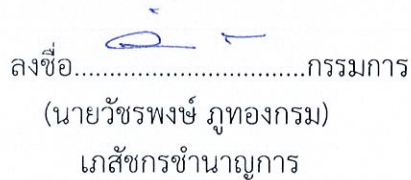 ลงชื่อ.................................กรรมการ
(นายวัชรพงษ์ ภูทองกรม)
เภสัชกรชำนาญการ